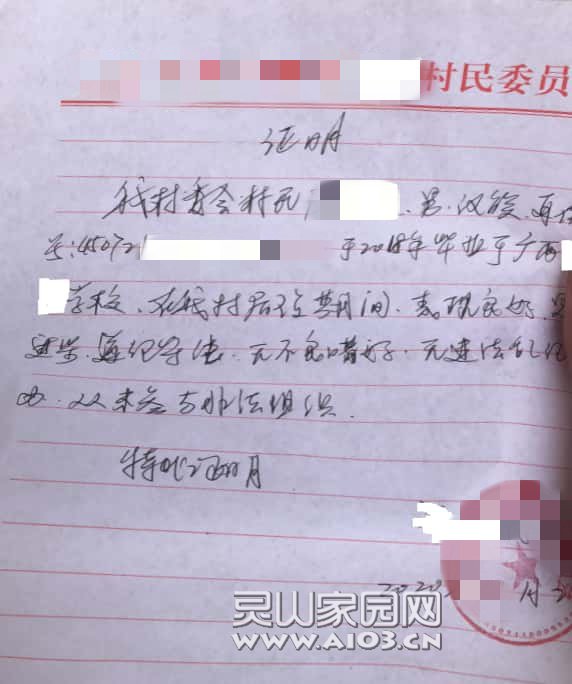 村民委员
证明
我村委会村民 、男、汉族、身份
号:45072 于2018年毕业于广西
学校、在我村居住期间、表现良好、
遵纪守法、无不良嗜好、无违法乱纪
、从未参与非法组织.
特此证明
2020 月
灵山家园网
WWW.AI03.CN